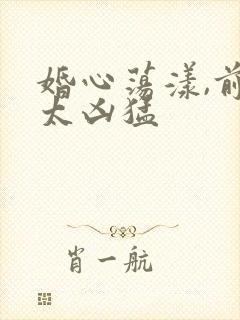 婚心荡漾,前
太凶猛
肖一航